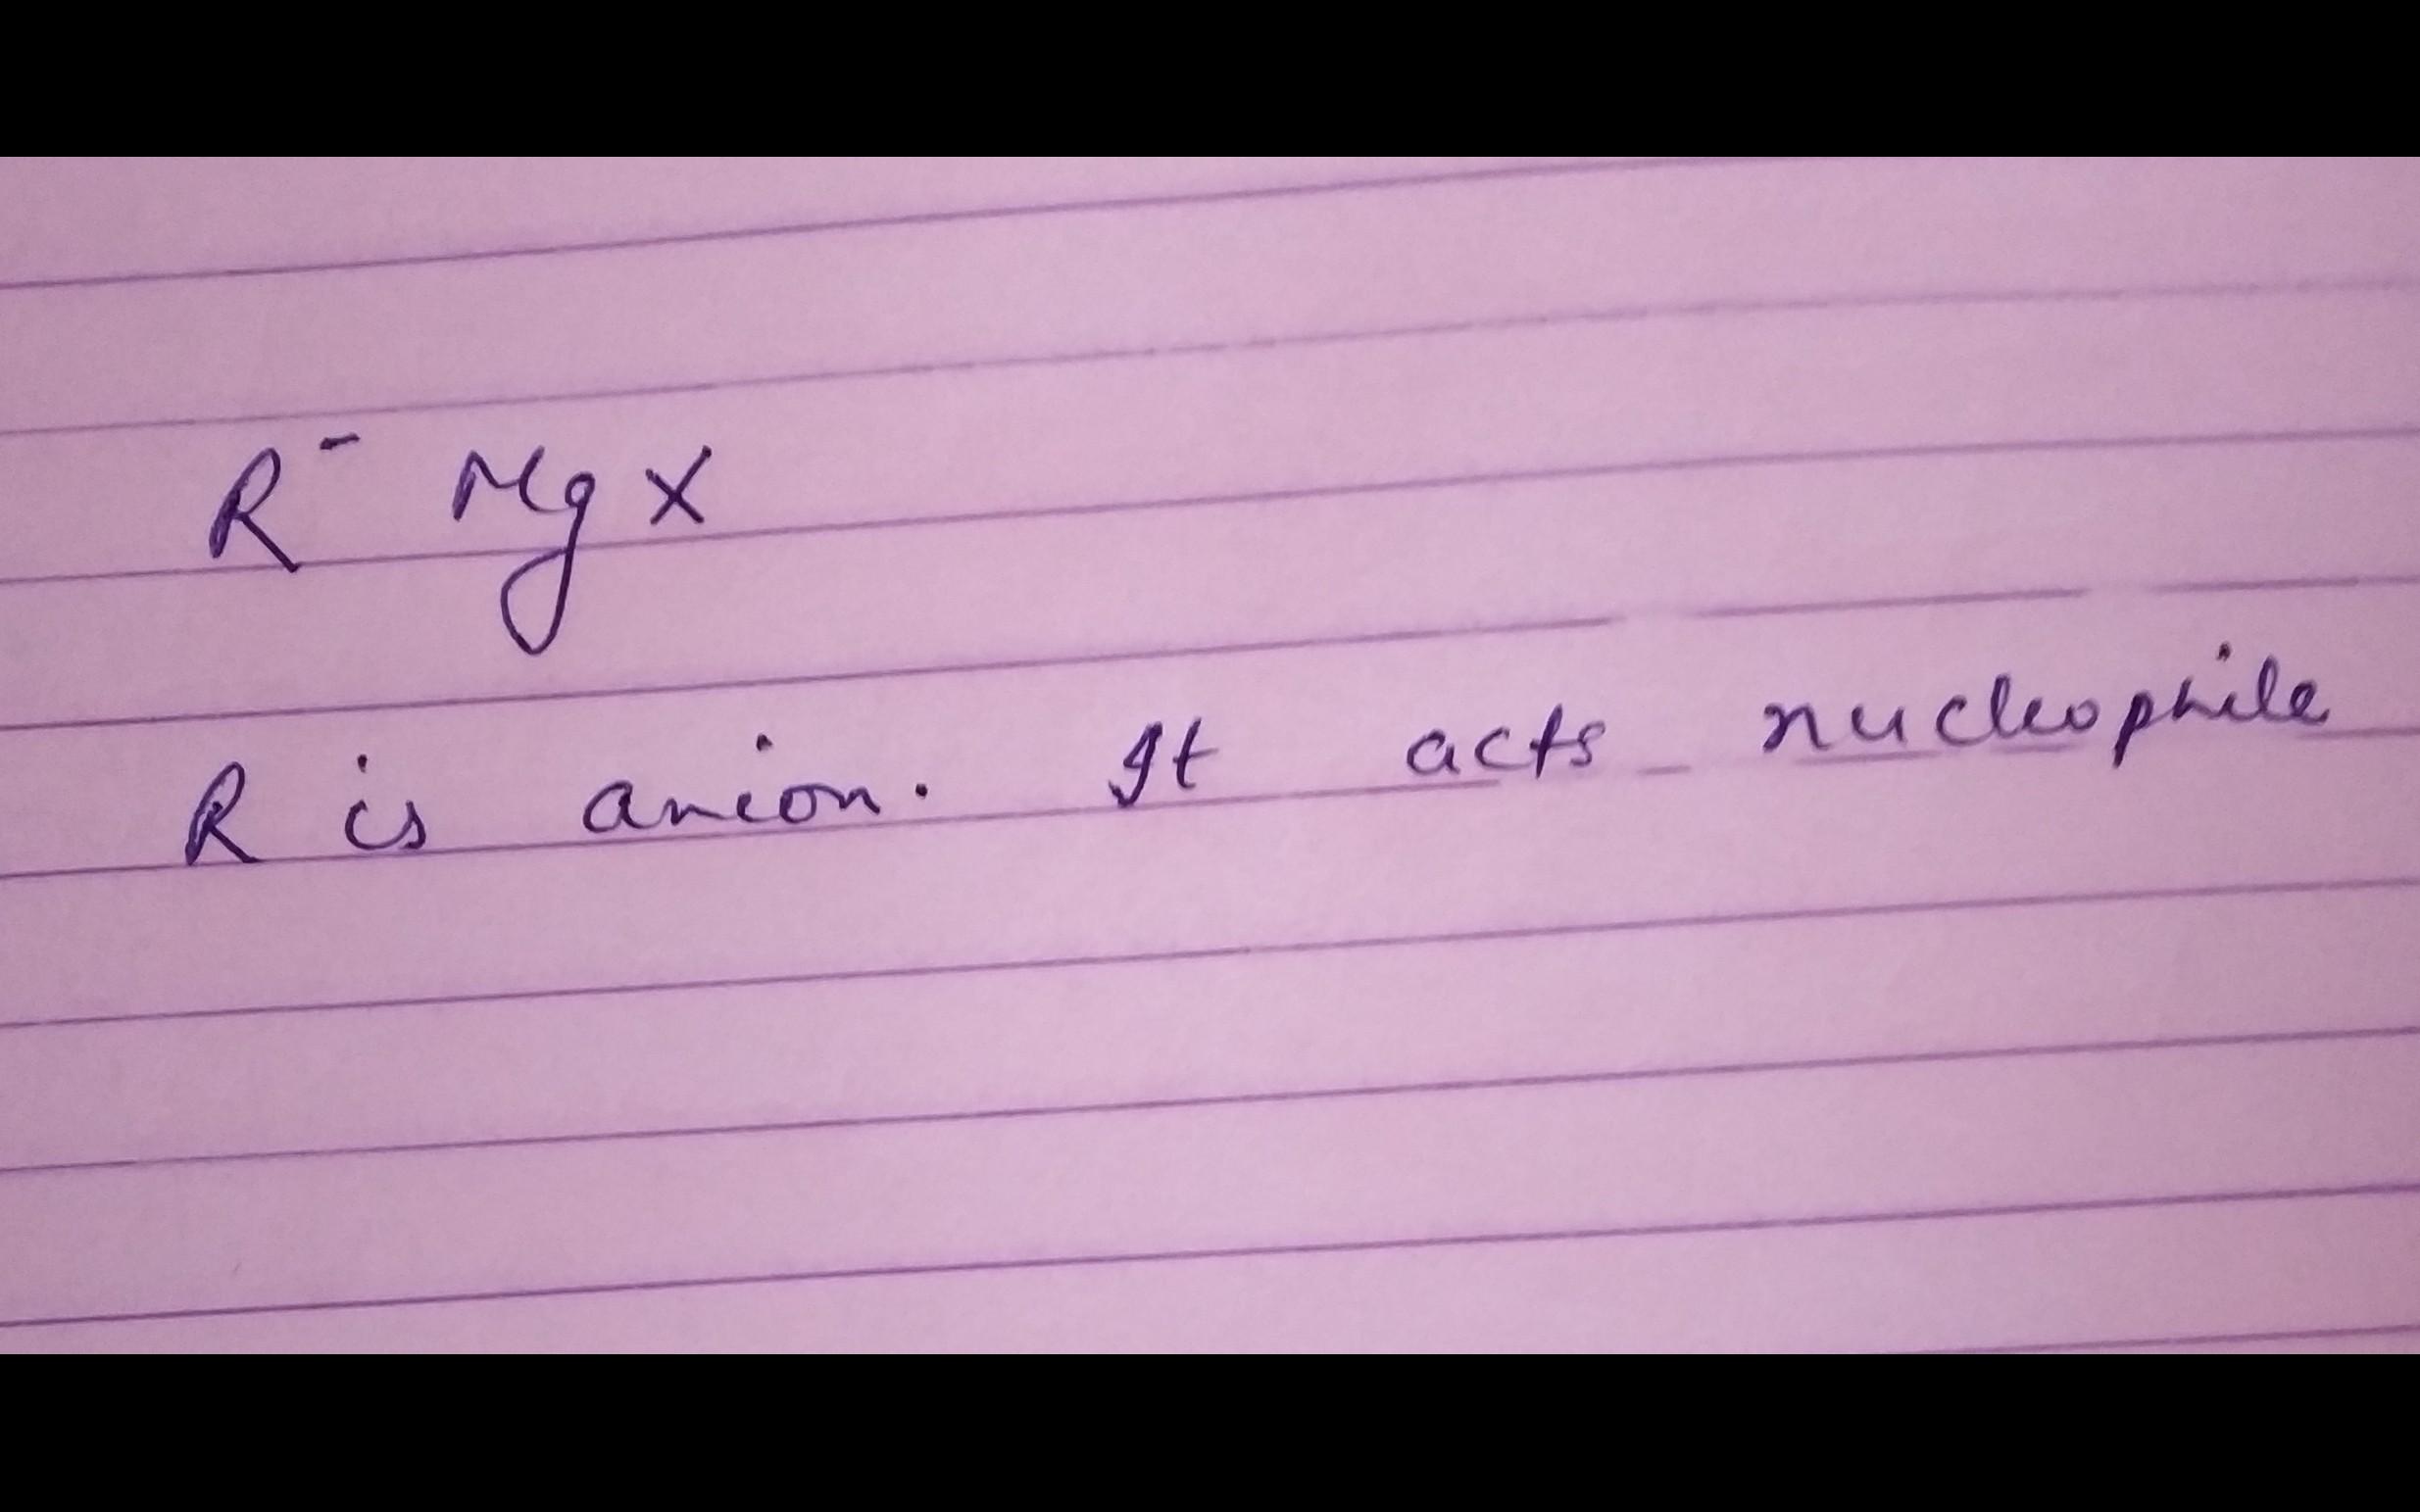 R⁻ MgX
R is anion. It acts nucleophile